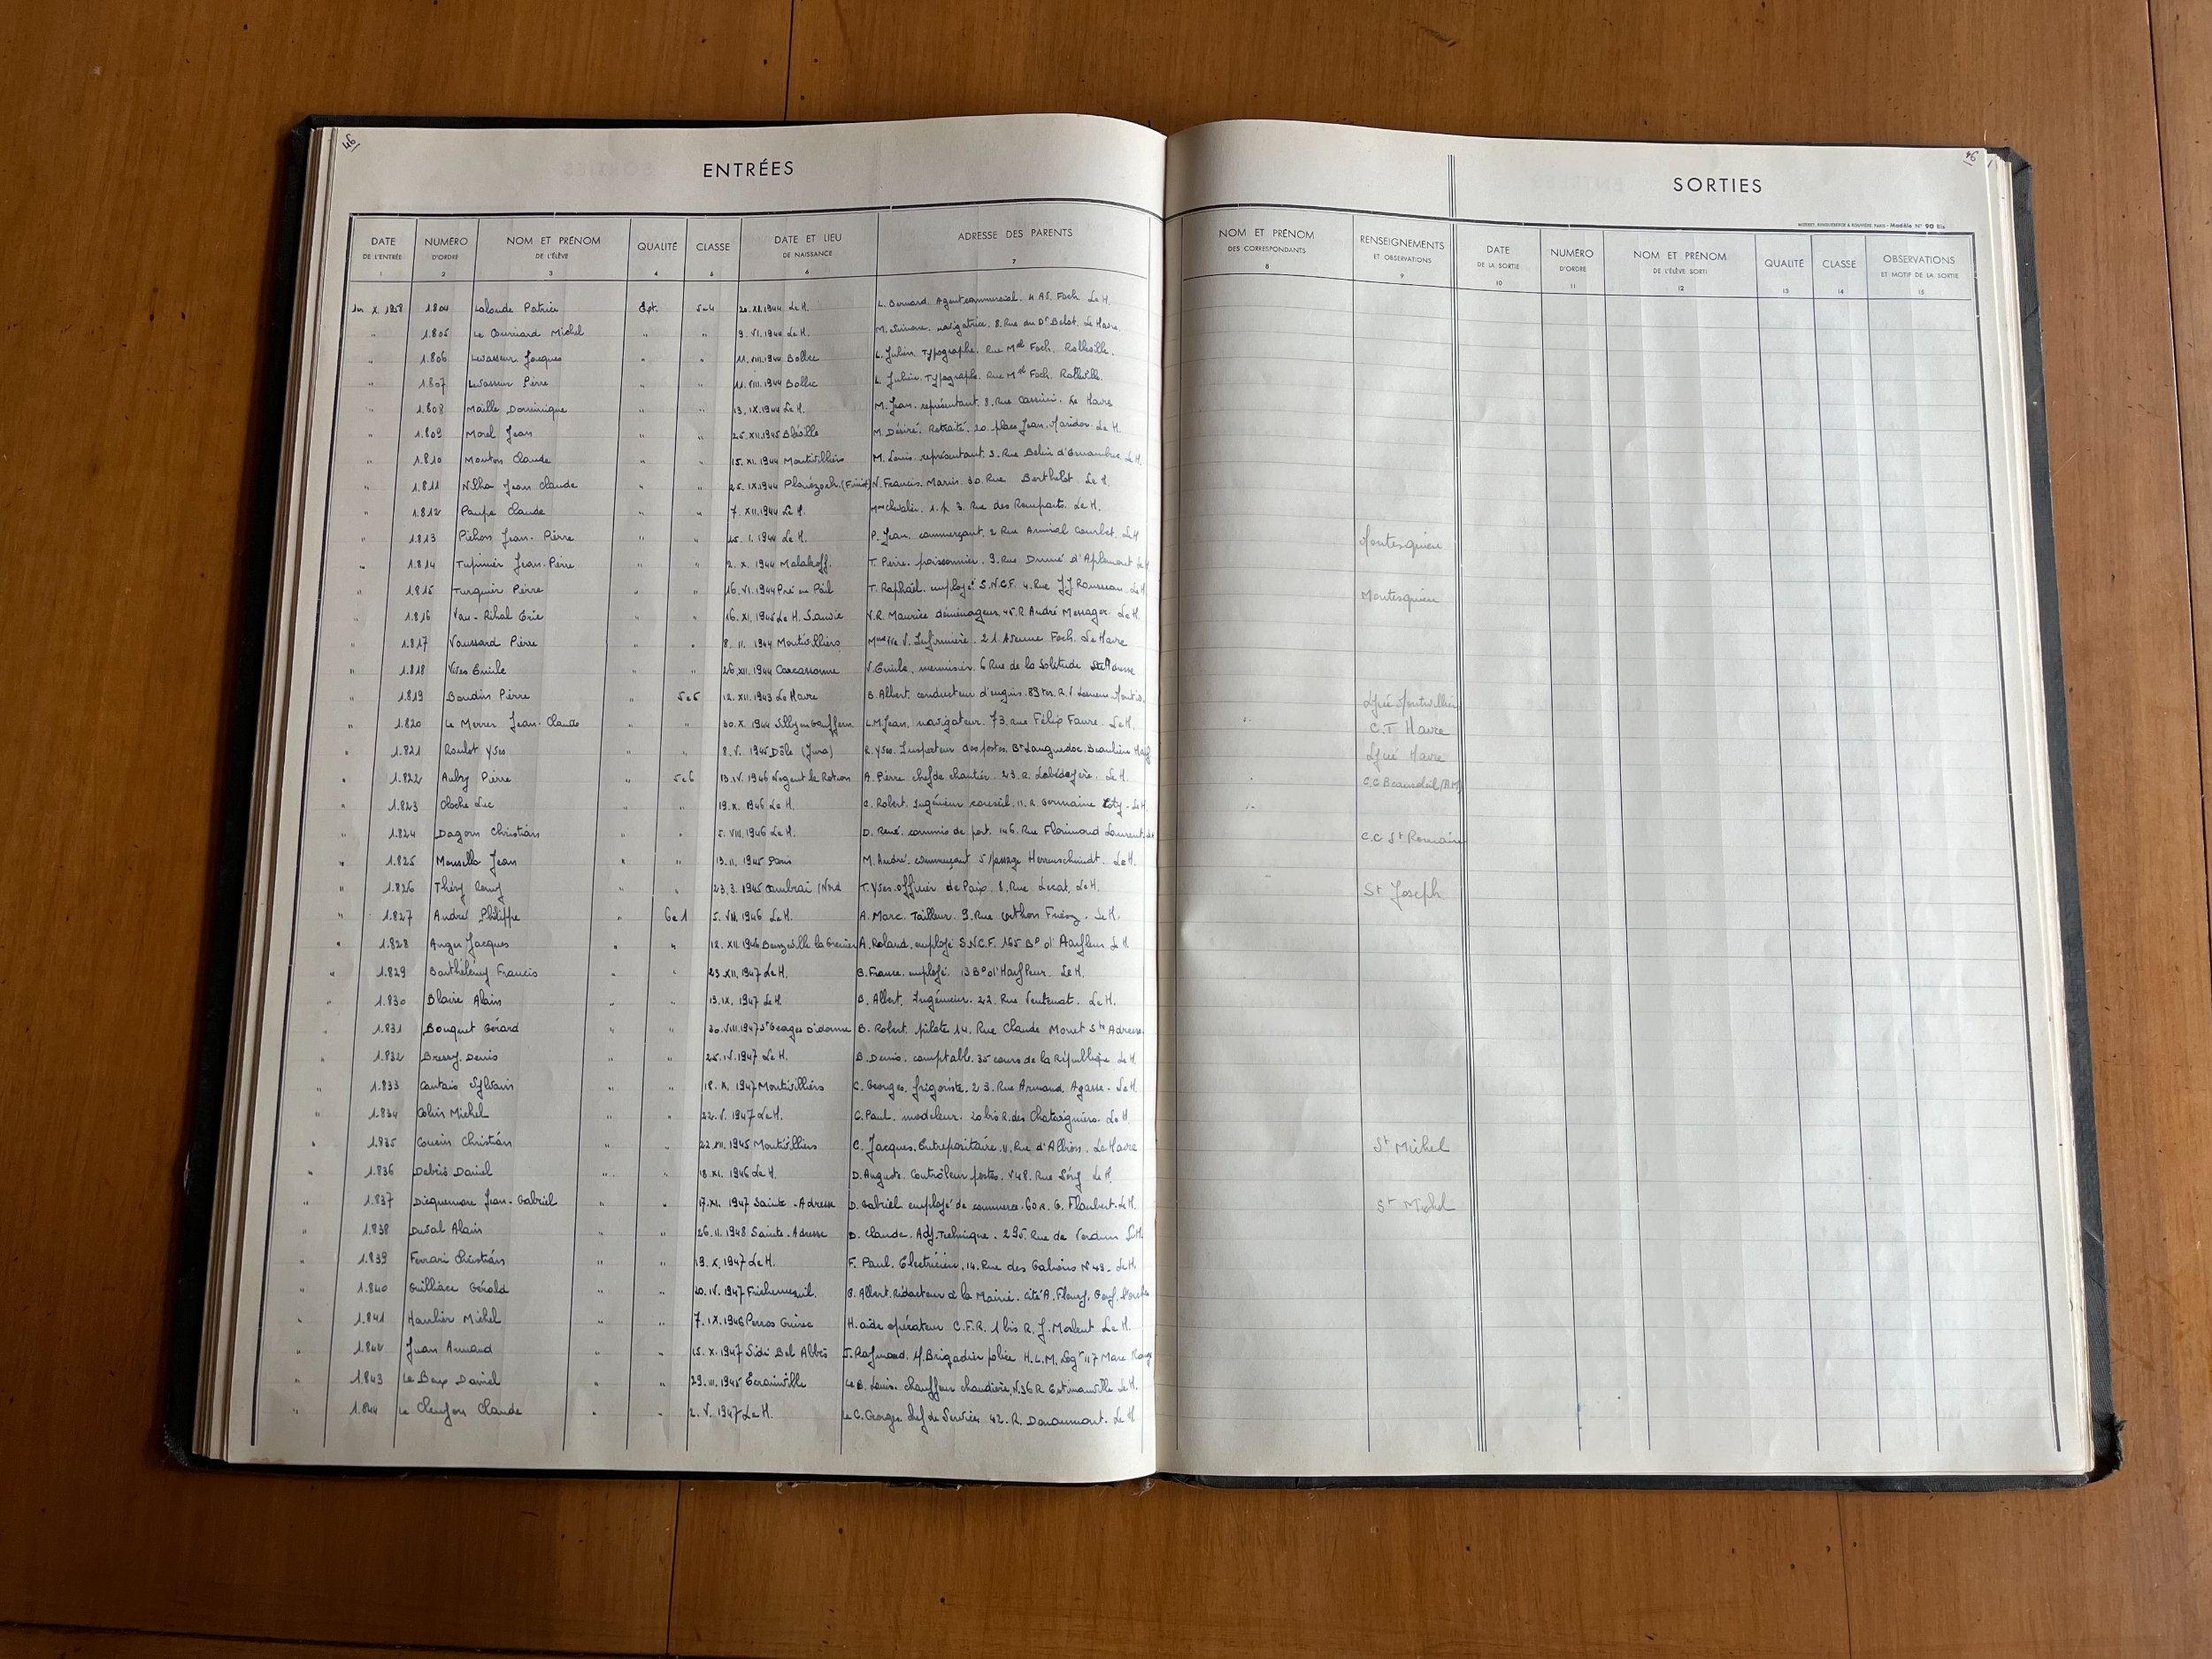 46
ENTRÉES
DATE DE L'ENTRÉE 1
NUMÉRO D'ORDRE 2
NOM ET PRÉNOM DE L'ÉLÈVE 3
QUALITÉ 4
CLASSE 5
DATE ET LIEU DE NAISSANCE 6
ADRESSE DES PARENTS 7
X. 1958 1.804 Lalaude Patrice Ext. 5e4 20.XI.1944 Le H. L. Bernard. Agent commercial. 4 AV. Foch Le H.
" 1.805 Le Michel " " 9.VI.1944 Le H. M. navigatrice. 8. Rue du Dr Belot. Le Havre.
" 1.806 Levasseur Jacques " " 11.VIII.1944 Bolbec L. Julien. Typographe. Rue Mal Foch. Rolleville.
" 1.807 Levasseur Pierre " " 11.VIII.1944 Bolbec L. Julien. Typographe. Rue Mal Foch. Rolleville.
" 1.808 Maille Dominique " " 13.IX.1944 Le H. M. Jean. représentant. 8. Rue Cassini. Le Havre
" 1.809 Morel Jean " " 25.XII.1945 Bléville M. Désiré. Retraité. 20. place Jean. Maridor. Le H.
" 1.810 Mouton Claude " " 15.XI.1944 Montivilliers M. Louis. représentant. 3. Rue Belin d'Esnambuc Le H
" 1.811 Jean Claude " " 25.IX.1944 N. Francis. Marin. 30. Rue Berthelot. Le H.
" 1.812 Paupe Claude " " 7.XII.1944 Le H. 3. Rue des Remparts. Le H.
" 1.813 Pichon Jean-Pierre " " I.1944 Le H. P. Jean. commerçant. 2 Rue Amiral Courbet. Le H
" 1.814 Tupinier Jean.Pierre " " 2.X.1944 Malakoff. T. Pierre. poissonnier. 9. Rue d'Aplemont Le H
" 1.815 Turquier Pierre " " 16.VI.1944 T. Raphaël. employé S.N.C.F. 4. Rue J.J Rousseau. Le H
" 1.816 Van-Rihal Eric " " 16.XI.1945 Le H. Sanvic V.R. Maurice déménageur. 45. R André Messager. Le H.
" 1.817 Vaussard Pierre " " 8.II.1944 Montivilliers Mme Vve V. Infirmière. 21. Avenue Foch. Le Havre
" 1.818 Vivès Emile " " 26.XII.1944 Carcassonne V. Emile. menuisier. 6 Rue de la Solitude Ste Adresse
" 1.819 Baudin Pierre " 5e5 12.XII.1943 Le Havre B. Albert. conducteur d'engins. 89 ter. R. V.
" 1.820 Le Merrer Jean-Claude " " 30.X.1944 Silly en Gouffern L.M. Jean. navigateur. 73. rue Félix Faure. Le H.
" 1.821 Roulot Yves " " 8.V.1945 Dôle (Jura) R. Yves. Inspecteur des postes. Bt Languedoc. Beaulieu
" 1.822 Aubry Pierre " 5e6 13.IV.1946 Nogent le Rotrou A. Pierre chef de chantier. 23. R. Labédoyère. Le H.
" 1.823 Cloche Luc " " 19.X.1946 Le H. C. Robert. Ingénieur conseil. 11. R. Germaine Coty. Le H
" 1.824 Dagorn Christian " " 5.VIII.1946 Le H. D. René. commis de port. 146. Rue Florimond Laurent. Le
" 1.825 Jean " " 13.II.1945 Paris M. André. commerçant 5 Passage Herrenschmidt. Le H.
" 1.826 Théry Rémy " " 23.3.1945 Cambrai (Nord T. Yves. officier de Paix. 8. Rue Lecat. Le H.
" 1.827 André Philippe " 6e1 5.VII.1946 Le H. A. Marc. Tailleur. 9. Rue Othon Friesz. Le H.
" 1.828 Anger Jacques " " 12.XII.1946 Beuzeville la Grenier A. Roland. employé S.N.C.F. 165 Bd d'Harfleur Le H.
" 1.829 Barthélémy Francis " " 23.XII.1947 Le H. B. France. employé. 13 Bd d'Harfleur. Le H.
" 1.830 Blaire Alain " " 13.IX.1947 Le H B. Albert. Ingénieur. 22. Rue Ventenat. Le H.
" 1.831 Bouquet Gérard " " 30.VIII.1947 St Georges Didonne B. Robert. pilote 14. Rue Claude Monet Ste Adresse.
" 1.832 Bressy. Denis " " 25.IV.1947 Le H. B. Denis. comptable. 35 cours de la République Le H.
" 1.833 Cantais Sylvain " " 18.X.1947 Montivilliers C. Georges. frigoriste. 23. Rue Armand. Agasse. Le H.
" 1.834 Colin Michel " " 22.V.1947 Le H. C. Paul. modeleur. 20 bis R. des Chataigniers. Le H
" 1.835 Cousin Christian " " 22.XII.1945 Montivilliers C. Jacques. Entrepositaire. 11. Rue d'Albion. Le Havre
" 1.836 Debris Daniel " " 18.XI.1946 Le H. D. Auguste. Contrôleur postes. Rue Séry Le H.
" 1.837 Dicquemare Jean-Gabriel " " 17.XI.1947 Sainte-Adresse D. Gabriel employé de commerce. 60 R. G. Flaubert. Le H.
" 1.838 Duval Alain " " 26.II.1948 Sainte-Adresse D. Claude. Adj. Technique. 295. Rue de Verdun Le H.
" 1.839 Ferrari Christian " " 19.X.1947 Le H. F. Paul. Electricien. 14. Rue des Galions N°49. Le H.
" 1.840 Guilliace Gérald " " 20.IV.1947 G. Albert. Rédacteur à la Mairie. cité A. Fleury.
" 1.841 Haulier Michel " " 7.IX.1946 Perros Guirec H. aide opérateur C.F.R. 1 bis R. J. Morlent Le H.
" 1.842 Juan Armand " " 15.X.1947 Sidi Bel Abbès J. Raymond. Brigadier police H.L.M. Logt 117 Mare Rouge
" 1.843 Le Bexp Daniel " " 29.III.1945 Ecrainville Le B. Louis. chauffeur chaudière. N°36 R Estimauville Le H.
" 1.844 Le Claude " " 2.V.1947 Le H. Le C. Georges. Chef de Service 42. R. Douaumont. Le H
46
SORTIES
Modèle N° 90 Bis
NOM ET PRÉNOM DES CORRESPONDANTS 8
RENSEIGNEMENTS ET OBSERVATIONS 9
DATE DE LA SORTIE 10
NUMÉRO D'ORDRE 11
NOM ET PRÉNOM DE L'ÉLÈVE SORTI 12
QUALITÉ 13
CLASSE 14
OBSERVATIONS ET MOTIF DE LA SORTIE 15
Montesquieu
Montesquieu
Lycée Montivilliers
C.T Havre
Lycée Havre
C.C
C.C St Romain
St Joseph
St Michel
St Michel